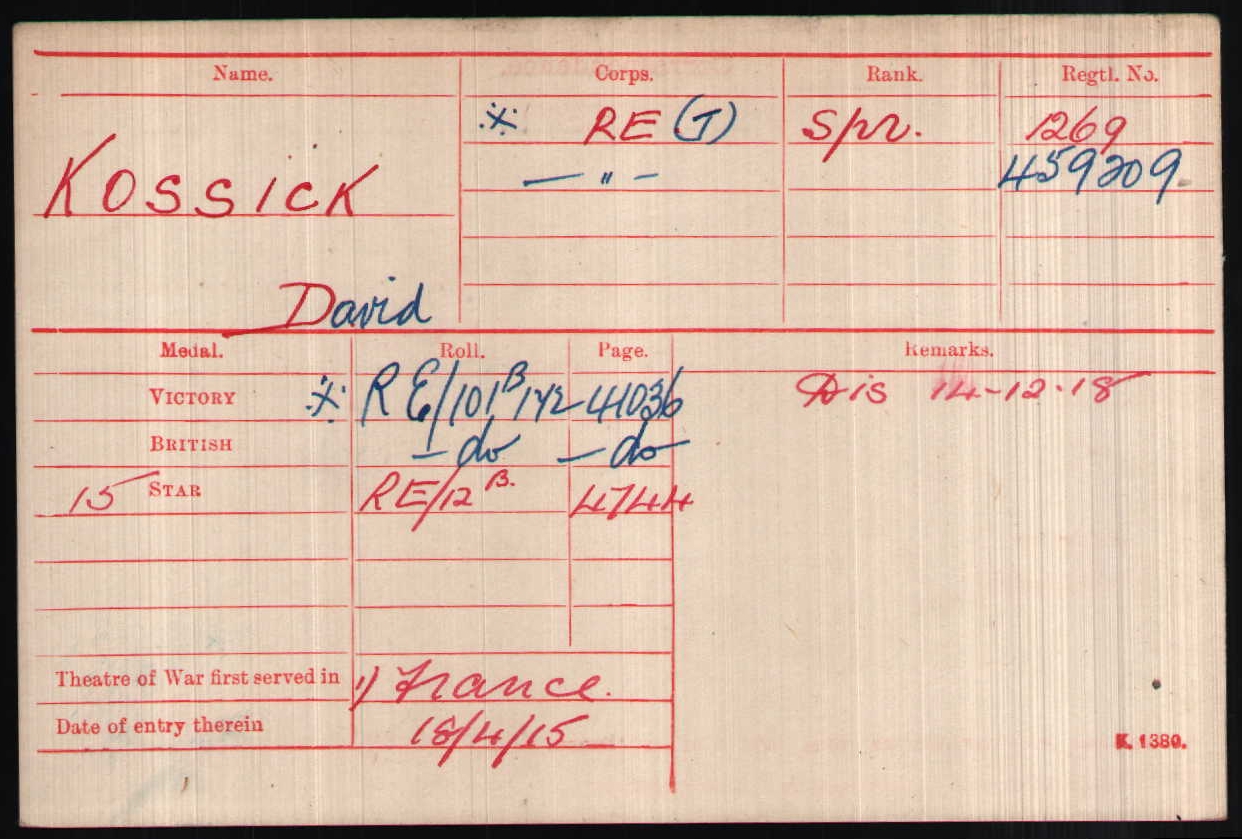 Name. Corps. Rank. Regtl. No.
※ RE (T) Spr. 1269
KOSSICK — " — 459209
David
Medal. Roll. Page. Remarks.
VICTORY ※ RE/101 B 142 41036 Dis 14-12-18
BRITISH — do — do
15 STAR RE/12 B. 4744
Theatre of War first served in 1) France.
Date of entry therein 18/4/15
K. 1380.